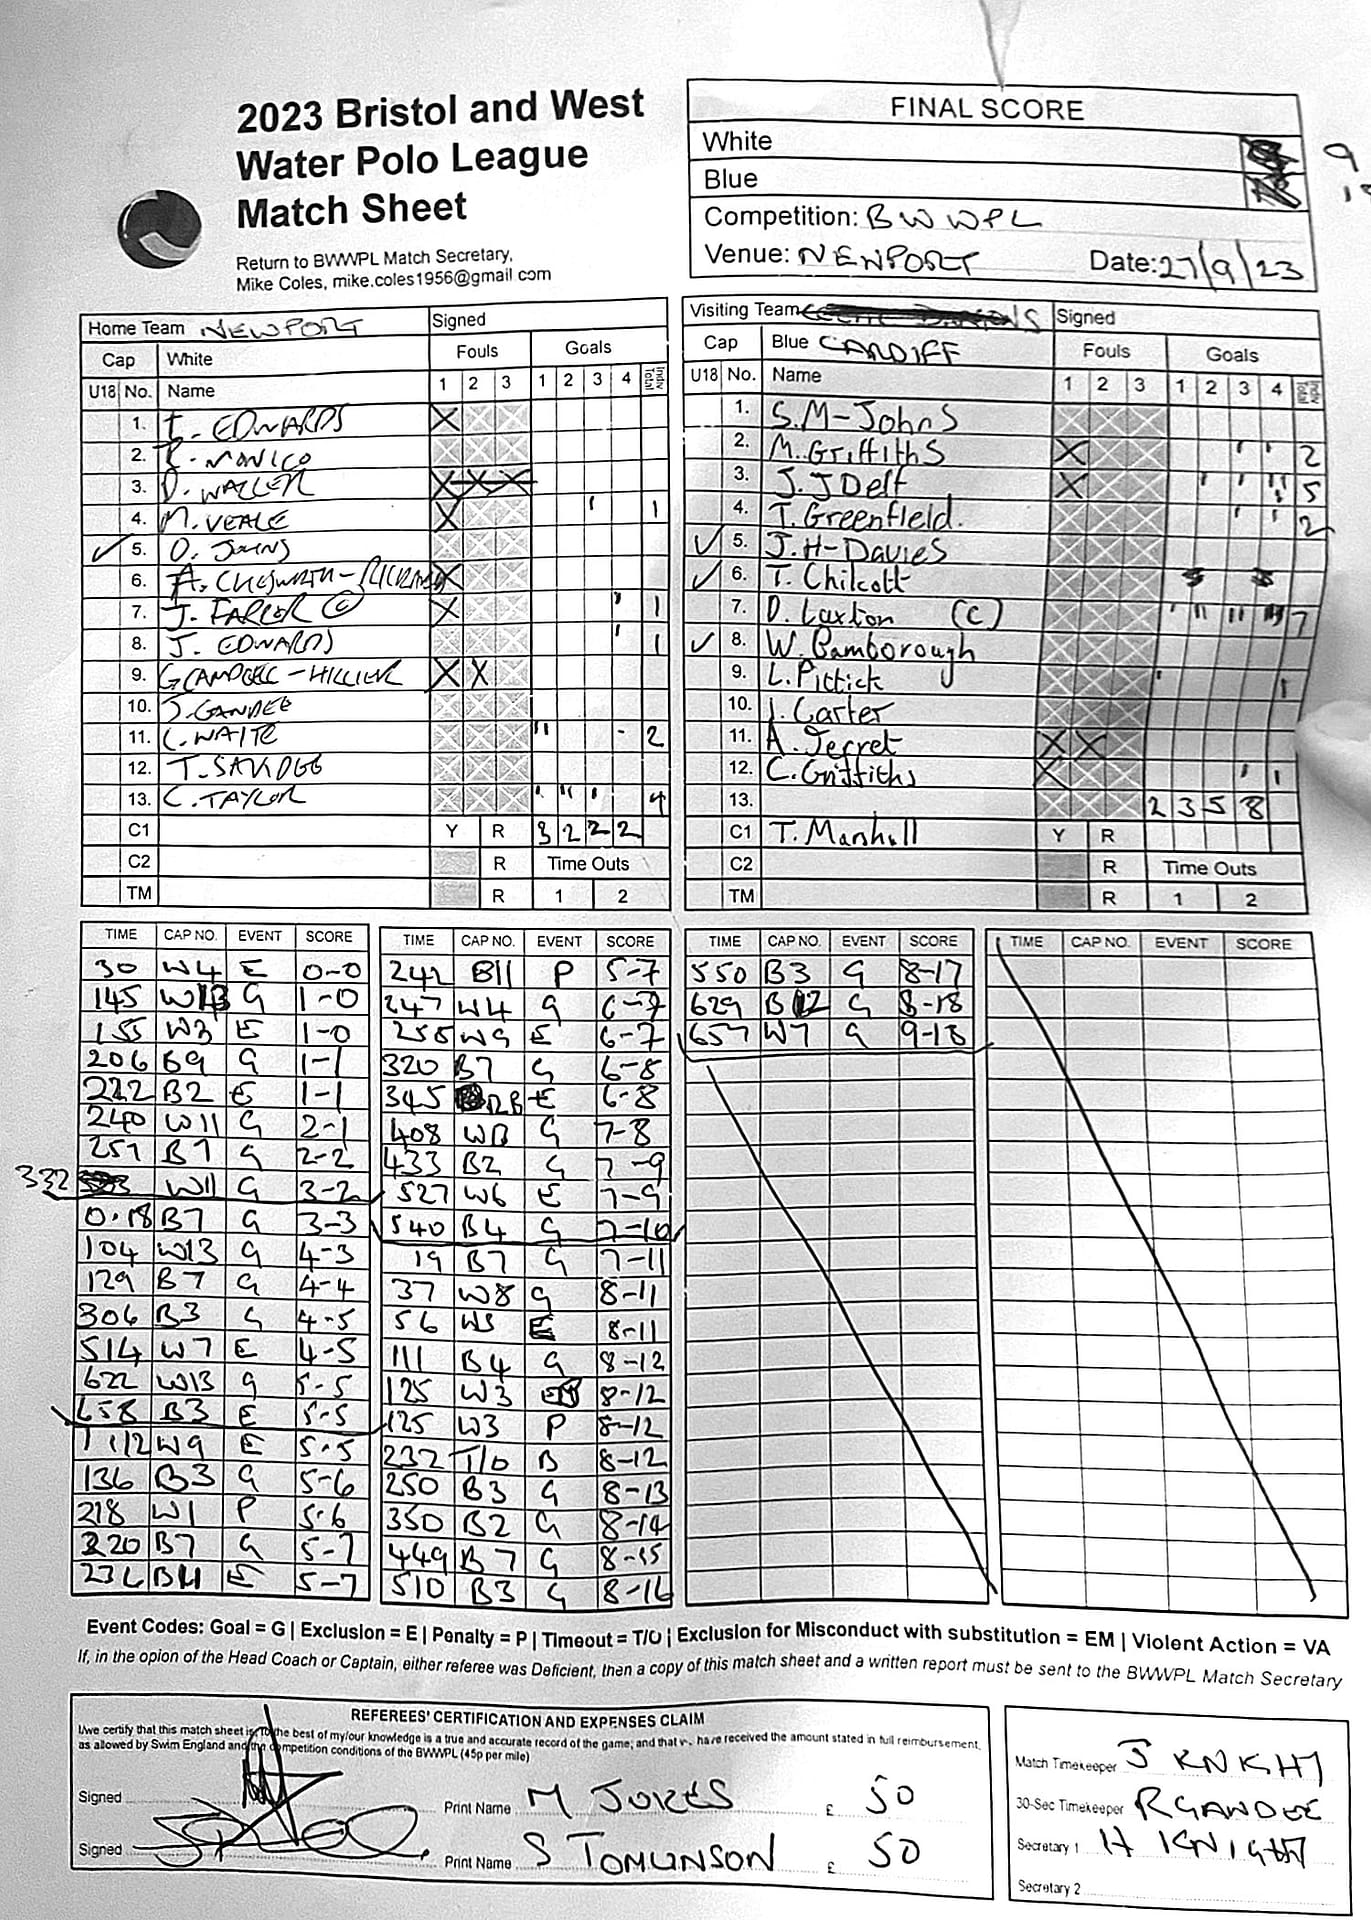 2023 Bristol and West
Water Polo League
Match Sheet
Return to BWWPL Match Secretary,
Mike Coles, mike.coles1956@gmail.com
FINAL SCORE
White 9
Blue
Competition: BWWPL
Venue: NEWPORT Date: 27/9/23
Home Team NEWPORT Signed
Cap White Fouls Goals
U18 No. Name 1 2 3 1 2 3 4 Indiv Total
1. E. EDWARDS X
2. R. MONICO
3. D. WALLER X X X
4. M. VEALE X ' 1
✓ 5. O. JOHNS
6. A. X
7. J. FARLOR © X ' 1
8. J. EDWARDS ' 1
9. G CAMPBELL-HILLIER X X
10. J. GANDEE
11. C. WAITE '' 2
12. T. SAVOGG
13. C. TAYLOR ' '' ' 4
C1 Y R 3 2 2 2
C2 R Time Outs
TM R 1 2
Visiting Team Signed
Cap Blue CARDIFF Fouls Goals
U18 No. Name 1 2 3 1 2 3 4 Indiv Total
1. S.M-Johns
2. M. Griffiths X ' ' 2
3. J. J Delf X ' ' ''' 5
4. T. Greenfield. ' ' 2
✓ 5. J.H-Davies
✓ 6. T. Chilcott
7. D. Laxton (C) ' '' '' 7
✓ 8. W. Bamborough
9. L. Pittick ' 1
10. J. Carter
11. A. Jecret X X
12. C. Griffiths X ' 1
13. 2 3 5 8
C1 T. Marshall Y R
C2 R Time Outs
TM R 1 2
TIME CAP NO. EVENT SCORE
30 W4 E 0-0
145 W13 G 1-0
155 W3 E 1-0
206 B9 G 1-1
222 B2 E 1-1
240 W11 G 2-1
257 B7 G 2-2
332 W11 G 3-2
0.18 B7 G 3-3
104 W13 G 4-3
129 B7 G 4-4
306 B3 G 4-5
514 W7 E 4-5
622 W13 G 5-5
658 B3 E 5-5
1 12 W9 E 5-5
136 B3 G 5-6
218 W1 P 5-6
220 B7 G 5-7
236 B11 E 5-7
TIME CAP NO. EVENT SCORE
242 B11 P 5-7
247 W4 G 6-7
258 W9 E 6-7
320 B7 G 6-8
345 12B E 6-8
408 W13 G 7-8
433 B2 G 7-9
527 W6 E 7-9
540 B4 G 7-10
19 B7 G 7-11
37 W8 G 8-11
56 W3 E 8-11
111 B4 G 8-12
125 W3 8-12
125 W3 P 8-12
232 T/O B 8-12
250 B3 G 8-13
350 B2 G 8-14
449 B7 G 8-15
510 B3 G 8-16
TIME CAP NO. EVENT SCORE
550 B3 G 8-17
629 B12 G 8-18
657 W7 G 9-18
TIME CAP NO. EVENT SCORE
Event Codes: Goal = G | Exclusion = E | Penalty = P | Timeout = T/O | Exclusion for Misconduct with substitution = EM | Violent Action = VA
If, in the opion of the Head Coach or Captain, either referee was Deficient, then a copy of this match sheet and a written report must be sent to the BWWPL Match Secretary
REFEREES' CERTIFICATION AND EXPENSES CLAIM
I/we certify that this match sheet is, to the best of my/our knowledge is a true and accurate record of the game; and that we have received the amount stated in full reimbursement,
as allowed by Swim England and the competition conditions of the BWWPL (45p per mile)
Signed Print Name M JONES £ 50
Signed Print Name S TOMLINSON £ 50
Match Timekeeper J KNIGHT
30-Sec Timekeeper R GANDEE
Secretary 1 H KNIGHT
Secretary 2